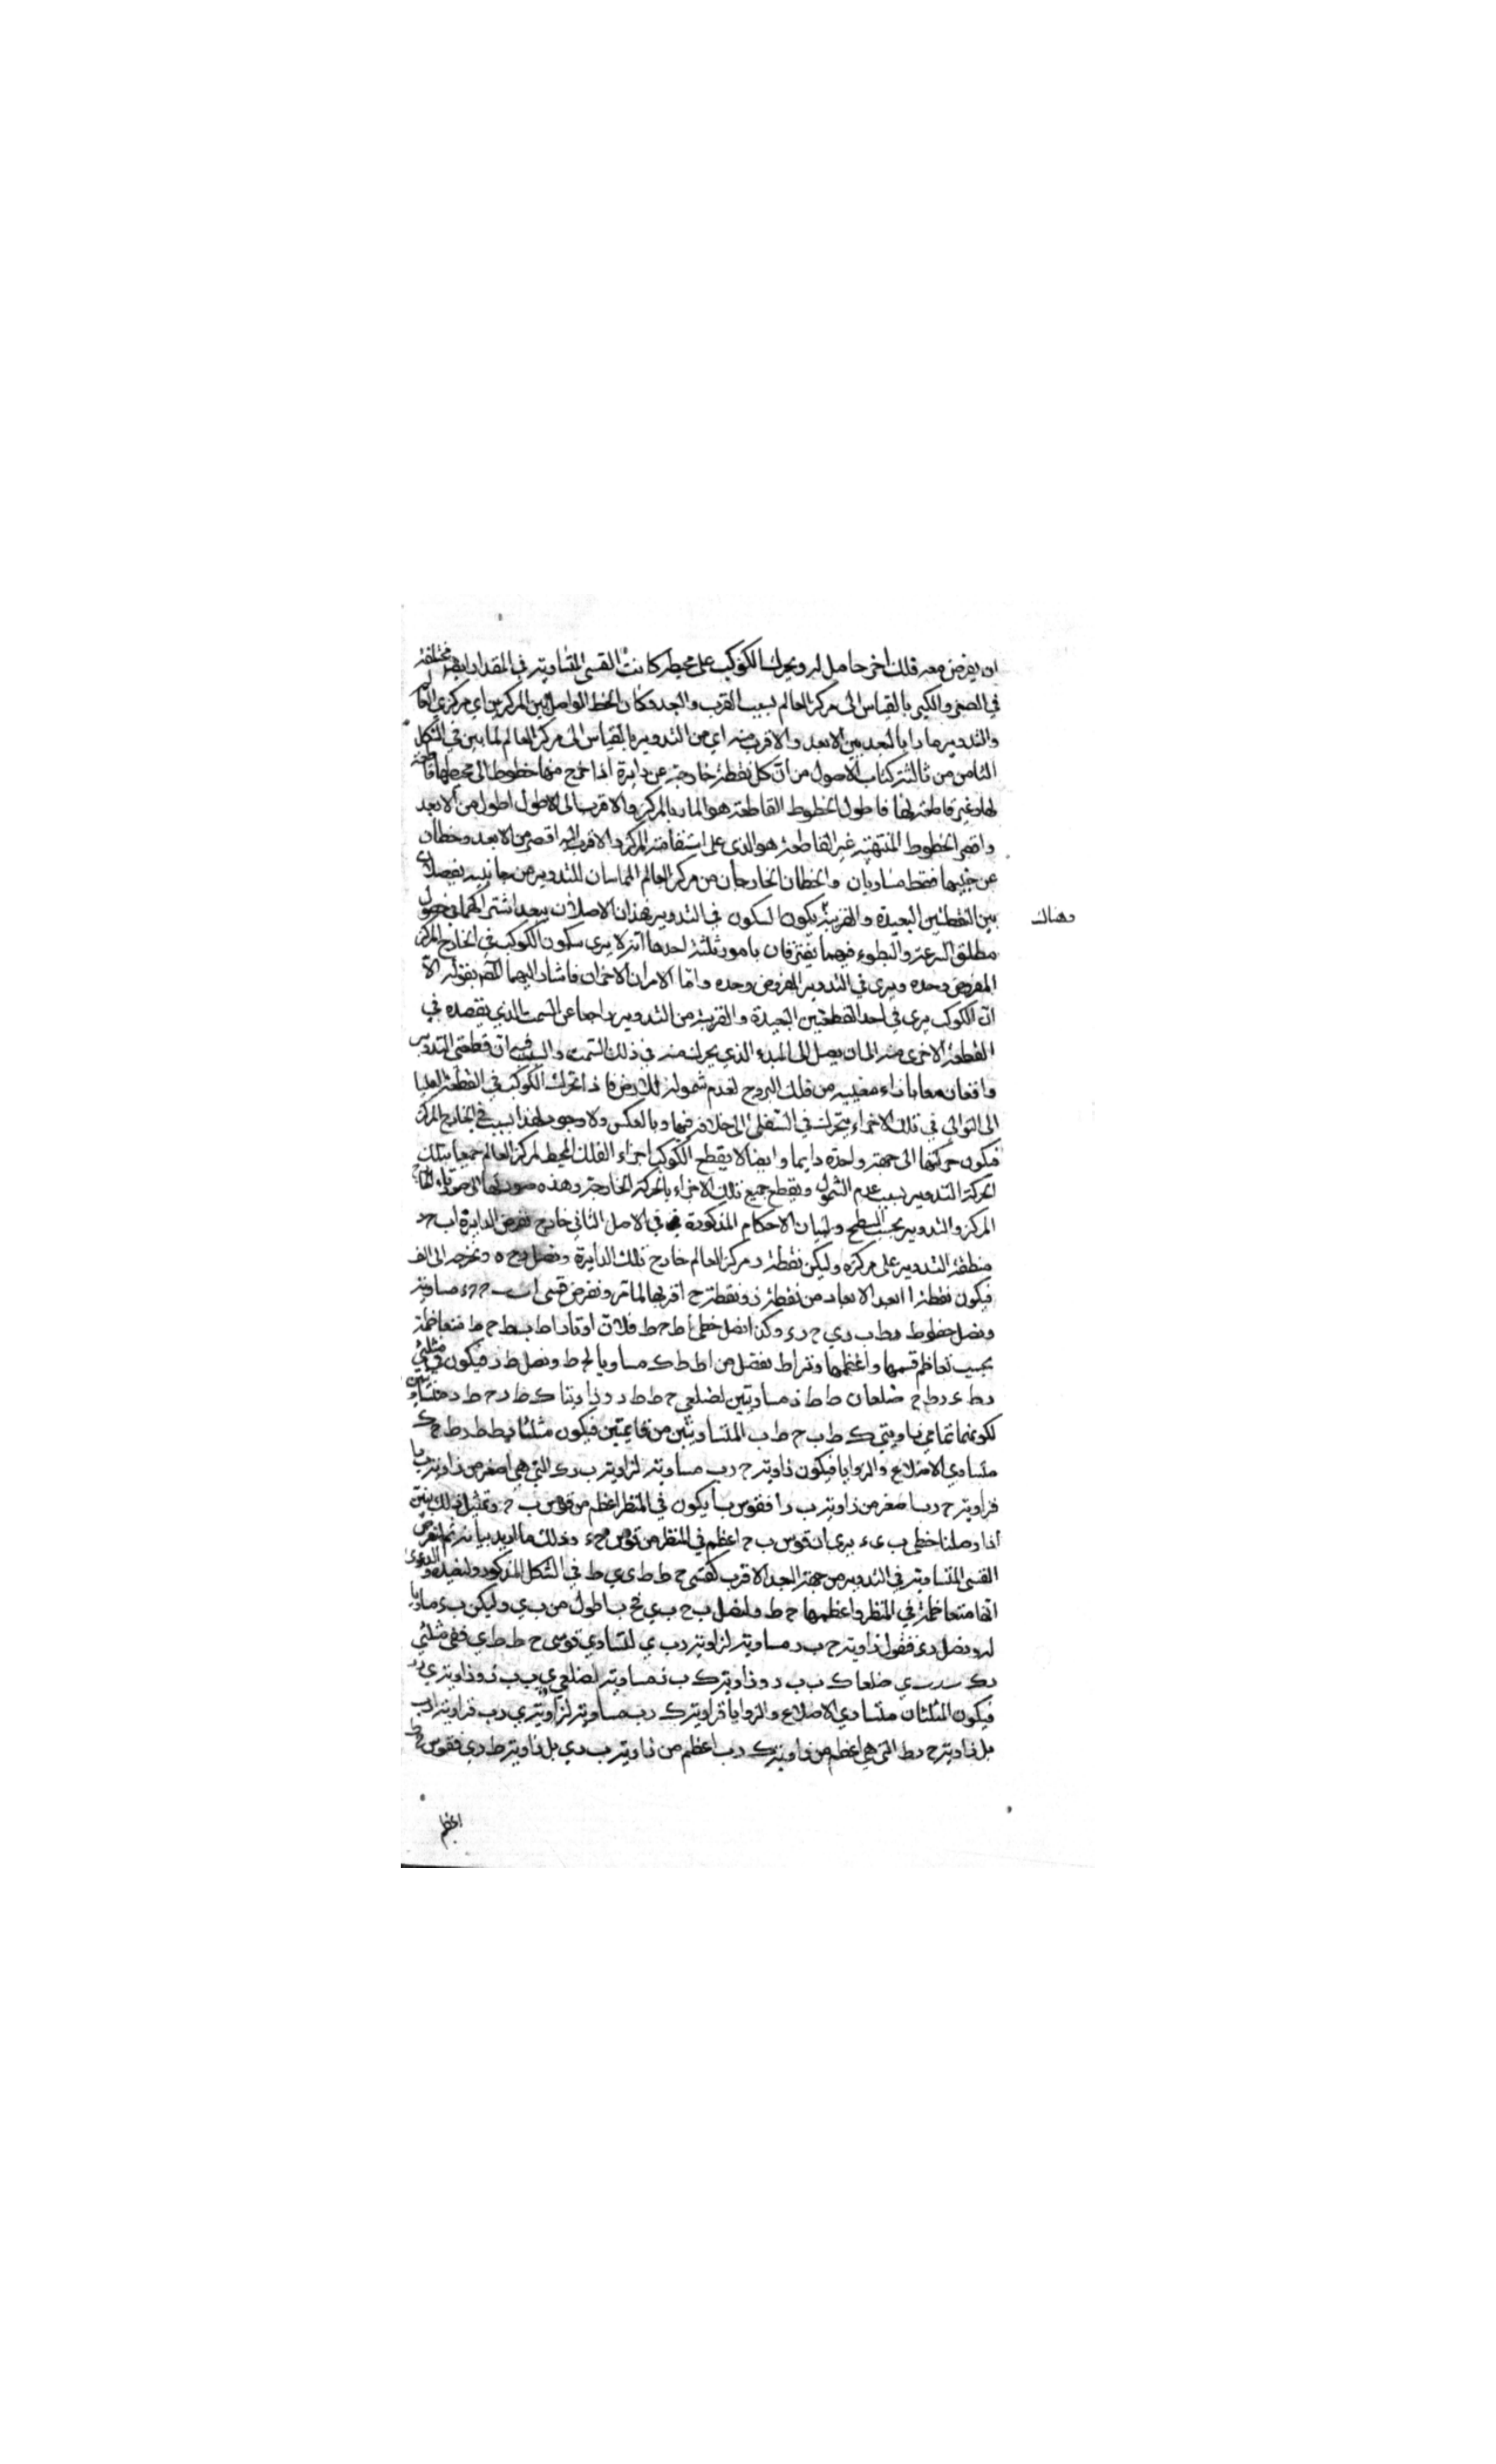 ان يفرض معه فلك اخر حامل له ويحرك الكوكب على محيطه كانت القسى المتساوية في المقدار ايضا مختلفة
في الصغر والكبر بالقياس الى مركز العالم بسبب القرب والبعد وكان الخط الواصل بين المركزين اي مركزي العالم
والتدوير مارا بالبعدين الابعد والاقرب منه اي من التدوير بالقياس الى مركز العالم لما بين في الشكل
الثامن من ثالثة كتاب الاصول من ان كل نقطة خارجة عن دايرة اذا خرج منها خطوط الى محيطها قاطعة
لها وغير قاطعة لها فاطول الخطوط القاطعة هو المار بالمركز والاقرب الى الاطول اطول من الابعد
واقصر الخطوط المنتهية غير القاطعة هو الذى على استقامة المركز والاقرب اليه اقصر من الابعد وخطان
عن جنبيها فقط متساويان والخطان الخارجان من مركز العالم المماسان للتدوير من جانبيه يفصلان
بين القطعتين البعيدة والقريبة يكون السكون في التدوير فهذان الاصلان بعد اشتراكهما في حصول
وهناك
مطلق السرعة والبطوء فيهما يفترقان بامور ثلثة احدها انه لا يرى سكون الكوكب في الخارج المركز
المفروض وحده ويرى في التدوير المفروض وحده واما الامران الاخران فاشار اليهما المصم بقوله الا
ان الكوكب يرى في احد القطعتين البعيدة والقريبة من التدوير راجعا عن السمت الذي يقصده في
القطعة الاخرى منه الى ان يصل الى المبدء الذي يحرك منه في ذلك السمت والسبب فيه ان قطعتى التدوير
واقعتان معا باذاء من فلك البروج لعدم شموله للارض فاذا تحرك الكوكب في القطعة العليا
الى التوالي في تلك الاجزاء يتحرك في السفلى الى خلافه فيها وبالعكس ولا وجود لهذا السبب في الخارج المركز
فيكون حركتها الى جهة واحدة دايما وايضا لا يقطع الكوكب اجزاء الفلك المحيط بمركز العالم جميعا بتلك
الحركة التدوير بسبب عدم الشمول ويقطع جميع تلك الاجزاء بالحركة الخارجة وهذه
المركز والتدوير بحسب السطح ولبيان الاحكام المذكورة في الاصل الثاني نفرض الدايرة ا ب ح د
منطقة التدوير على مركزه وليكن نقطة د مركز العالم خارج تلك الدايرة ونصل د ح ه ونخرجه الى الف
فيكون نقطة ا ابعد الابعاد من نقطة د ونقطة ح اقربها لما مر ونفرض قسى متساوية
ونصل خطوط د ط ب د ي ح د ء وكذا نصل خطى ا ط ح ط فلان اوتار ا ط ب ط ح ط متعاظمة
بحسب تعاظم قسيها واعظمها وتر ا ط نفصل من ا ط ط ك مساويا لح ط ونصل ط د فيكون في مثلثى
ضلعان ط ط د مساويتين لضلعى ح ط ط د وزاويتا ك ط د ح ط د متساويتين
لكونهما تمامي زاويتي ك ط ب ح ط ب المتساويتين من قايمتين فيكون مثلثا
متساوي الاضلاع والزوايا فيكون زاوية ح د ب مساوية لزاوية ب د ك التي هي اصغر من زاوية ب د ا
فزاوية ح د ب اصغر من زاوية ب د ا فقوس ب ا يكون في المنظر اعظم من قوس ب ح وبمثل ذلك يتبين
اذا وصلنا خطى ب ى ء يرى ان قوس ب ح اعظم في المنظر من قوس ح ء وذلك ما اريد بيانه ثم لنفرض
القسى المتساوية في التدوير من جهة البعد الاقرب كقسى ح ط ط ى ي ط في الشكل المذكور
انها متعاظمة في المنظر واعظمها ح ط ولنصل ب ح ب ي فح ب اطول من ب ي وليكن ب ء مساويا
له ونصل د ء فنقول زاوية ح ب د مساوية لزاوية د ب ي لتساوي قوسى ح ط ط ي ففى مثلثى
ضلعا ك ب ب د وزاوية ك ب د مساوية لضلعى ي ب ب د وزاوية ي ب د
فيكون المثلثان متساوي الاضلاع والزوايا فزاوية ك د ب مساوية لزاوية ي د ب فزاوية
بل زاوية ح د ط التي هي اعظم من زاوية ك د ب اعظم من زاوية ب د ي بل زاوية ط د ي فقوس ح ط
اعظم